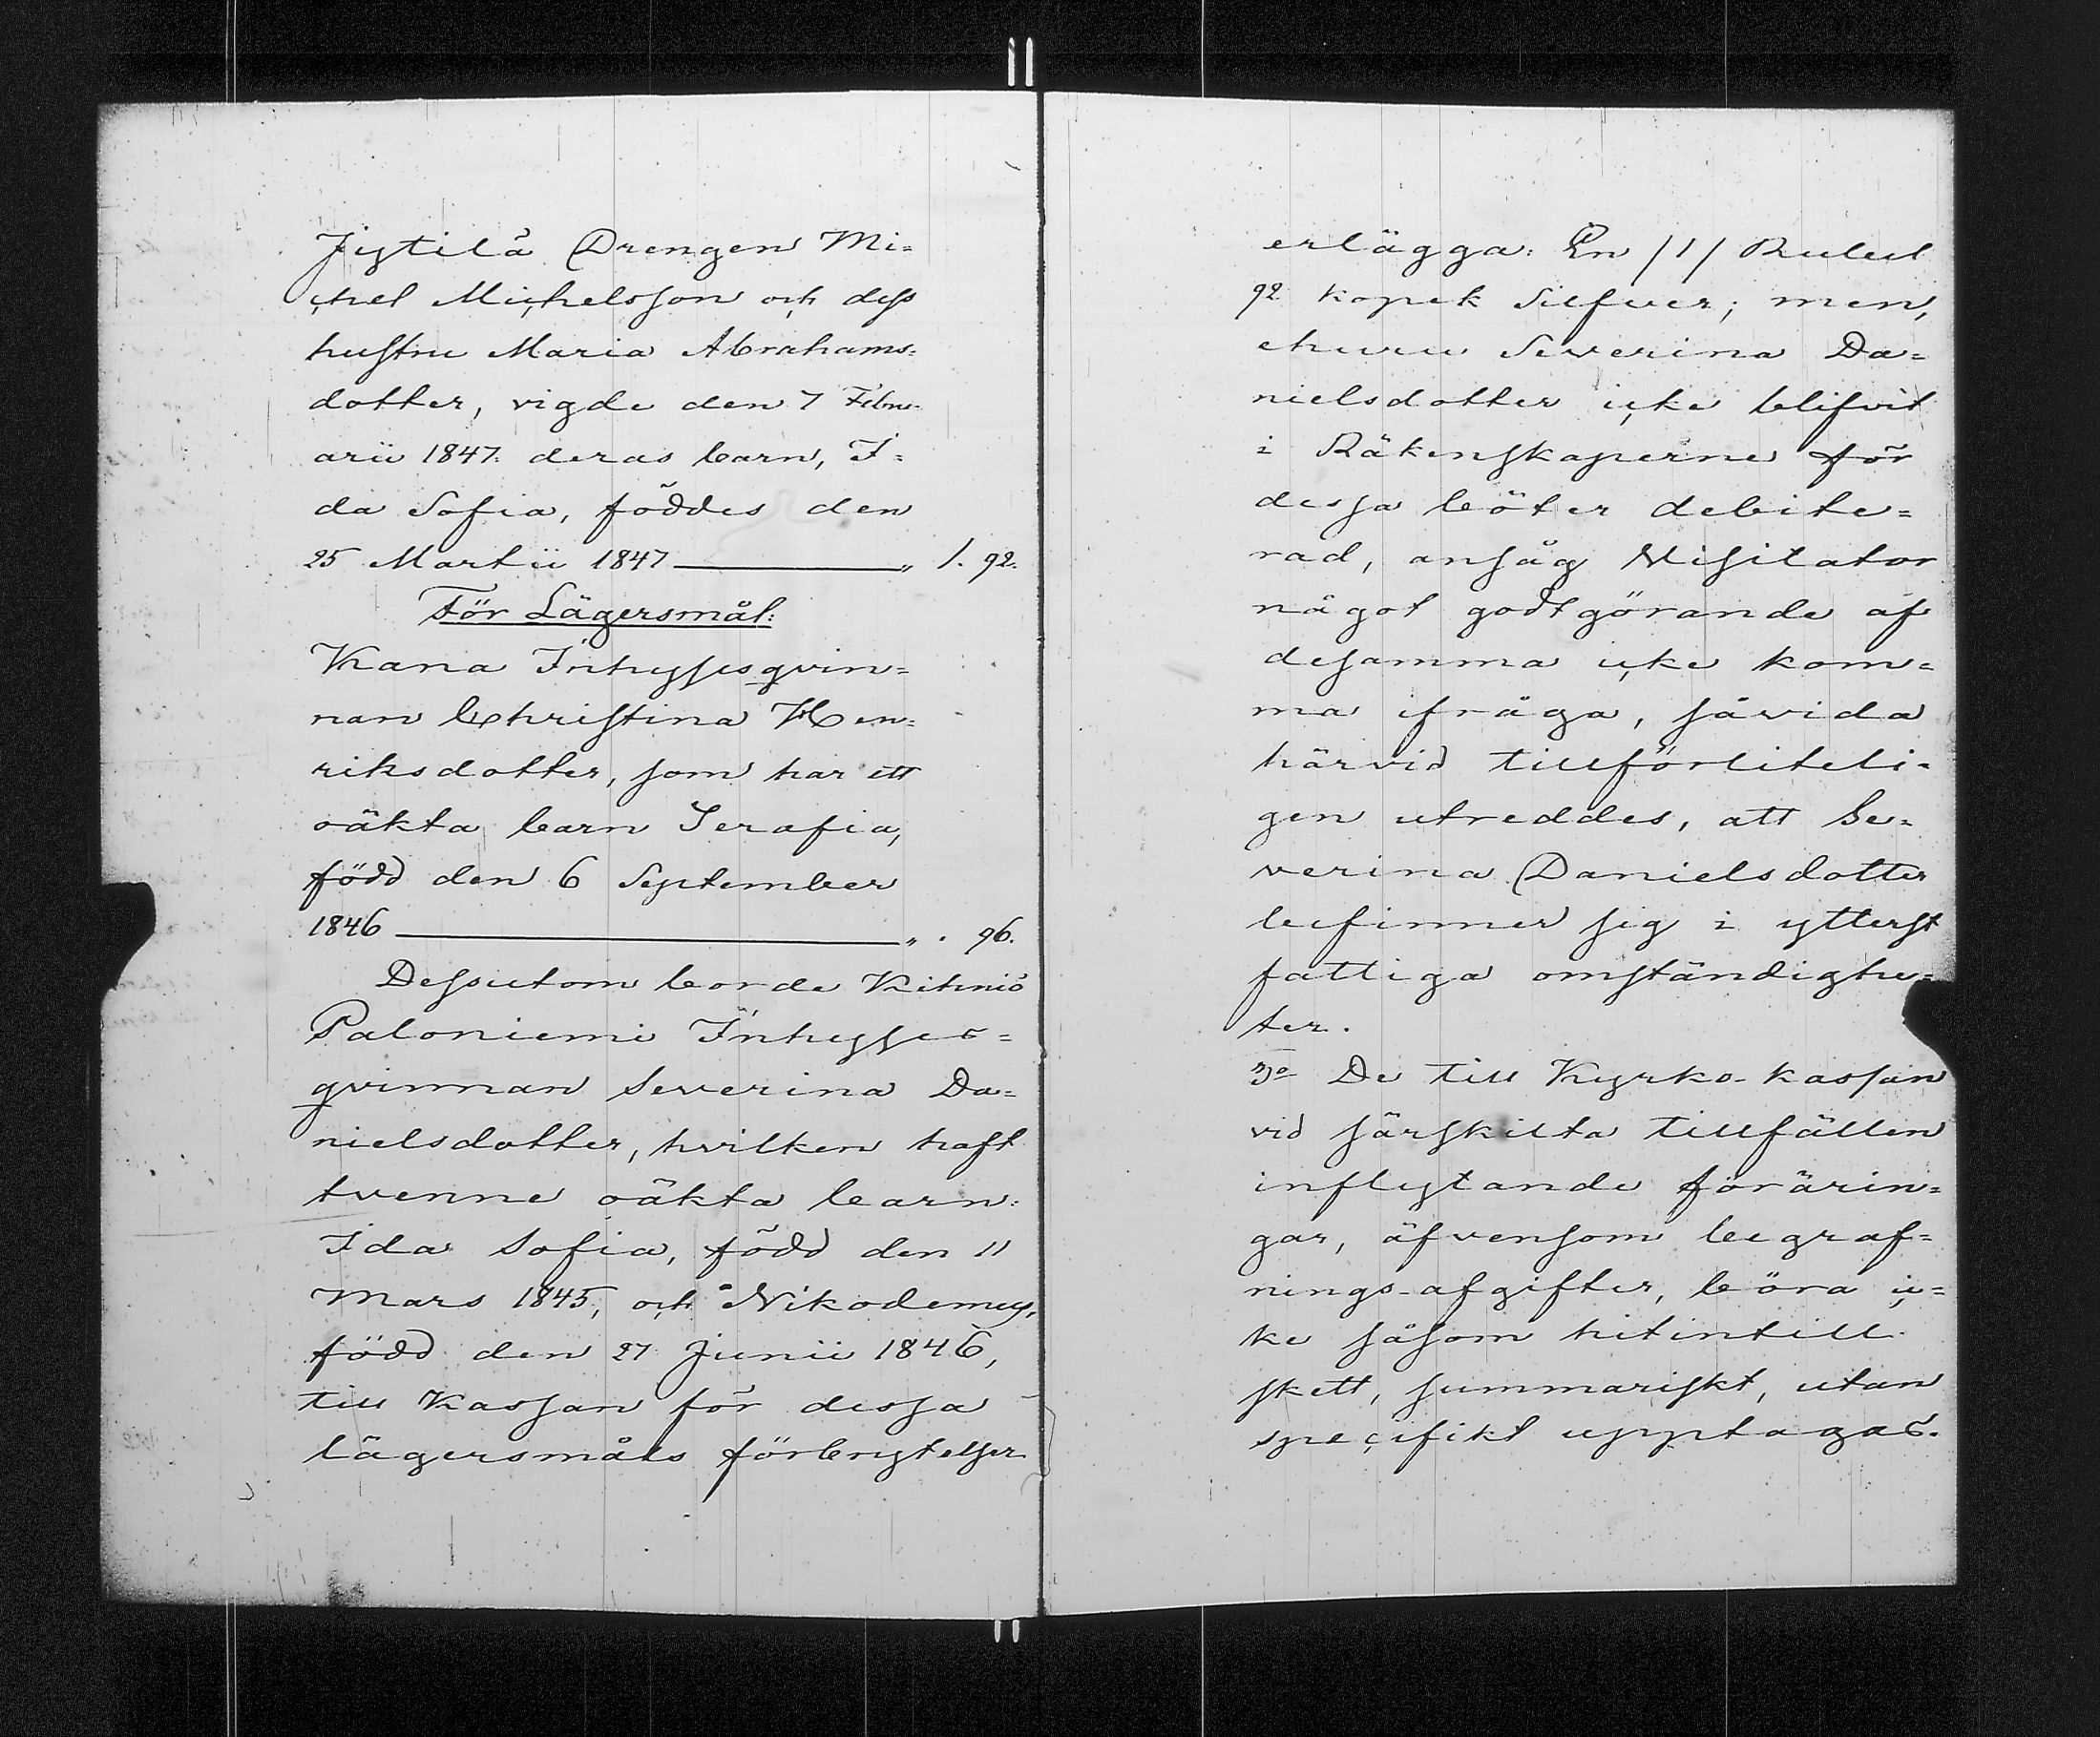 Jytilä Drengen Mi=
chel Michelsson och dess
hustru Maria Abrahams=
dotter, vigde den 7 Febru-
arii 1847. deras barn, I=
da Sofia, föddes den
25 Martii 1847 — „ 1. 92.
För Lägersmål:
Kana Inhysesqvin=
nan Christina Hen=
riksdotter, som har ett
oäkta barn Serafia,
född den 6 September
1846 — „ . 96.
Dessutom borde Kihniö
Paloniemi Inhyses=
qvinnan Severina Da=
nielsdotter, hvilken haft
tvenne oäkta barn:
Ida Sofia, född den 11
Mars 1845, och Nikodemus,
född den 27 Junii 1846,
till Kassan för dessa
lägersmåls förbrytelser
erlägga: En /1/ Rubel
92 kopek Silfver; men,
ehuru Severina Da=
nielsdotter icke blifvit
i Räkenskaperne för
dessa böter debite=
rad, ansåg Visitator
något godtgörande af
desamma icke kom=
ma ifråga, såvida
härvid tillförliteli=
gen utreddes, att Se=
verina Danielsdotter
befinner sig i ytterst
fattiga omständighe=
ter.
3o De till Kyrko-kassan
vid särskilta tillfällen
inflytande förärin=
gar, äfvensom begraf=
nings-afgifter, böra ic=
ke såsom hitintill
skett, summariskt, utan
specifikt upptagas.